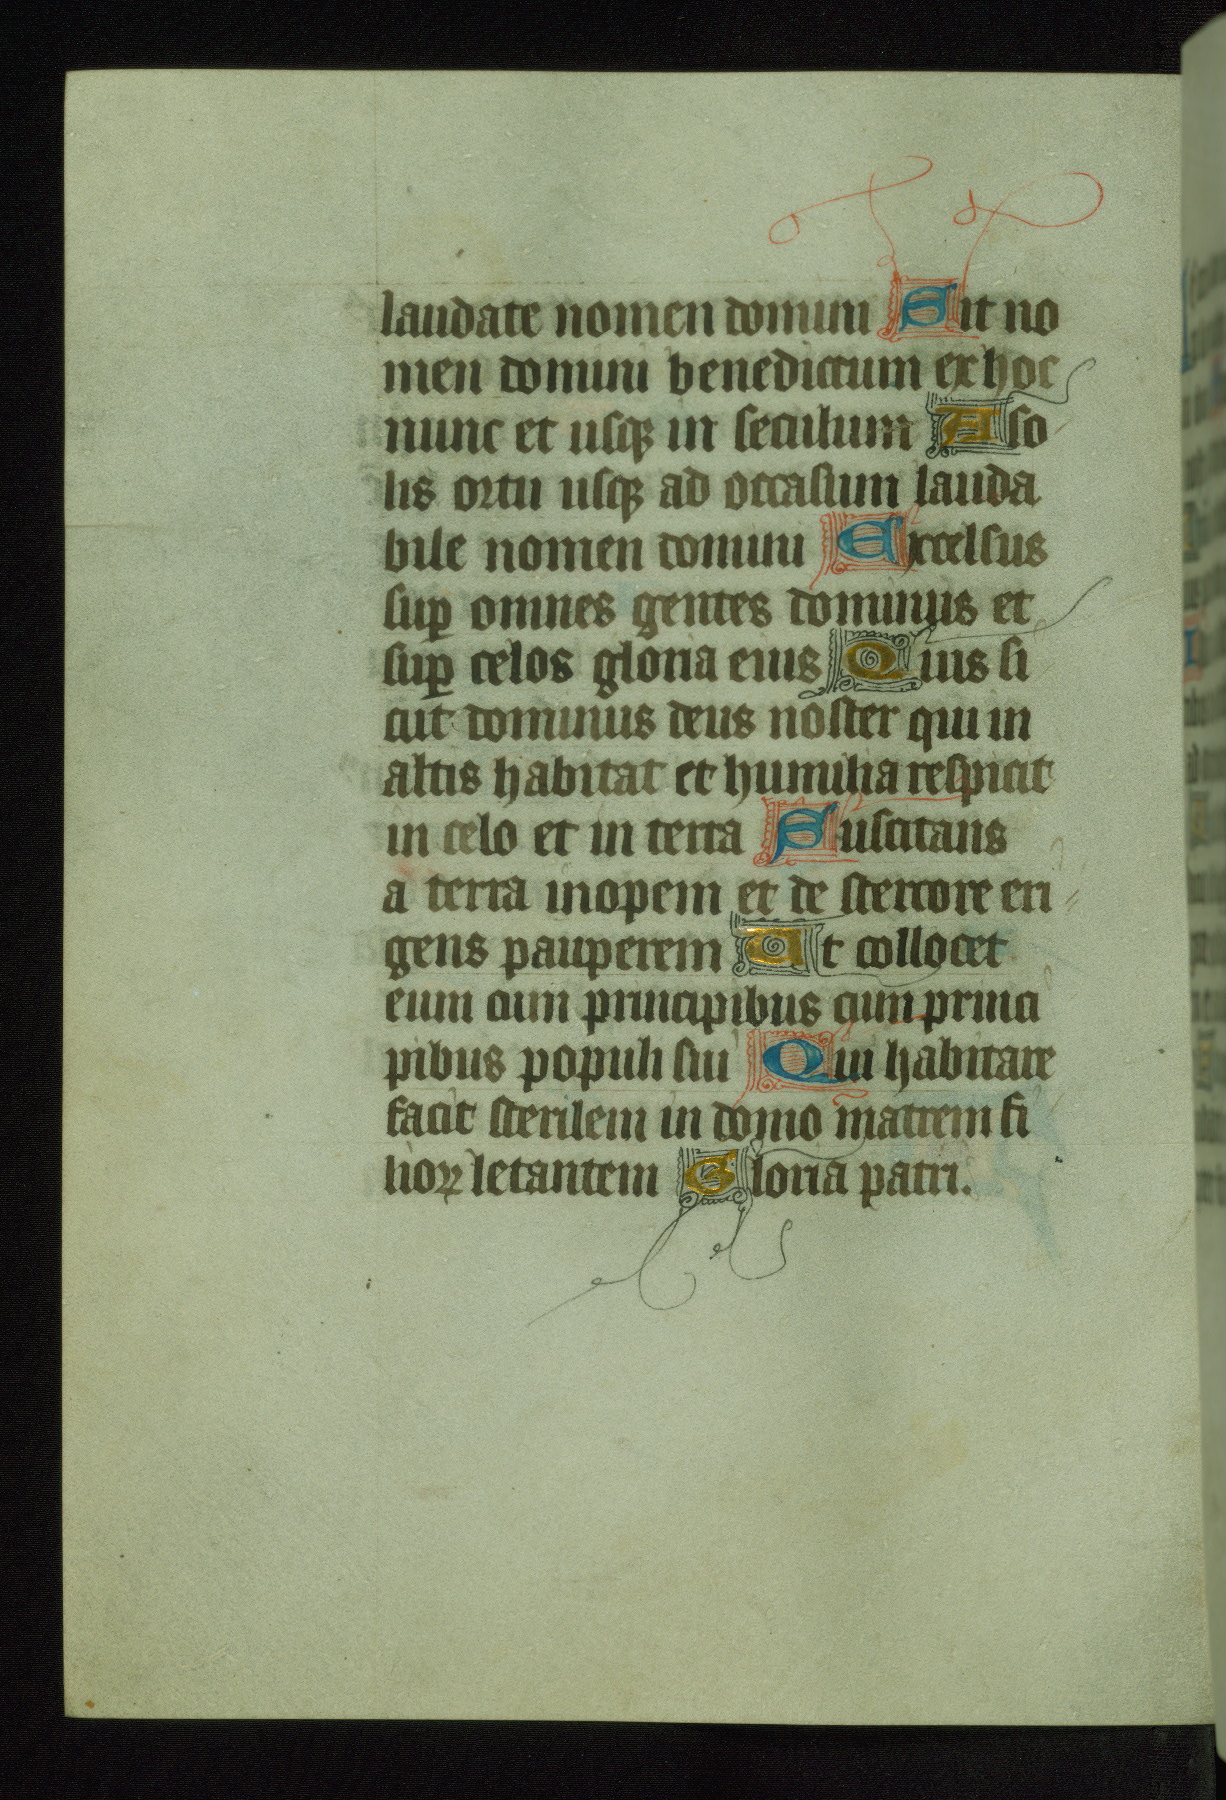 laudate nomen domini Sit no
men domini benedictum ex hoc
nunc et usqꝫ in seculum A so
lis ortu usqꝫ ad occasum lauda
bile nomen domini Excelsus
suꝑ omnes gentes dominus et
suꝑ celos gloria eius Quis si
cut dominus deus noster qui in
altis habitat et humilia respicit
in celo et in terra Suscitans
a terra inopem et de stercore eri
gens pauperem Ut collocet
eum cum principibus cum princi
pibus populi sui Qui habitare
facit sterilem in domo matrem fi
lioꝝ letantem Gloria patri.